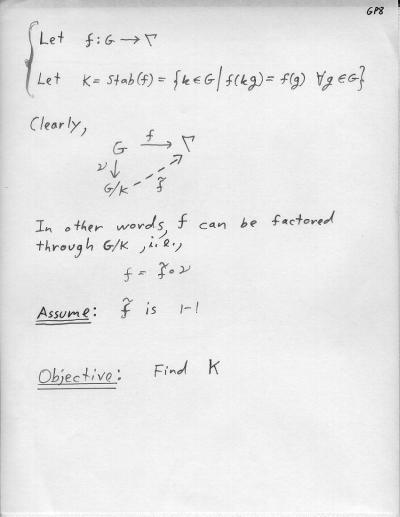 GP8
Let f: G → Γ
Let K = Stab(f) = {k ∈ G | f(kg) = f(g) ∀g ∈ G}
Clearly,
G f → Γ
ν ↓
G/K f̃
In other words, f can be factored
through G/K, i.e.,
f = f̃ ∘ ν
Assume: f̃ is 1-1
Objective: Find K